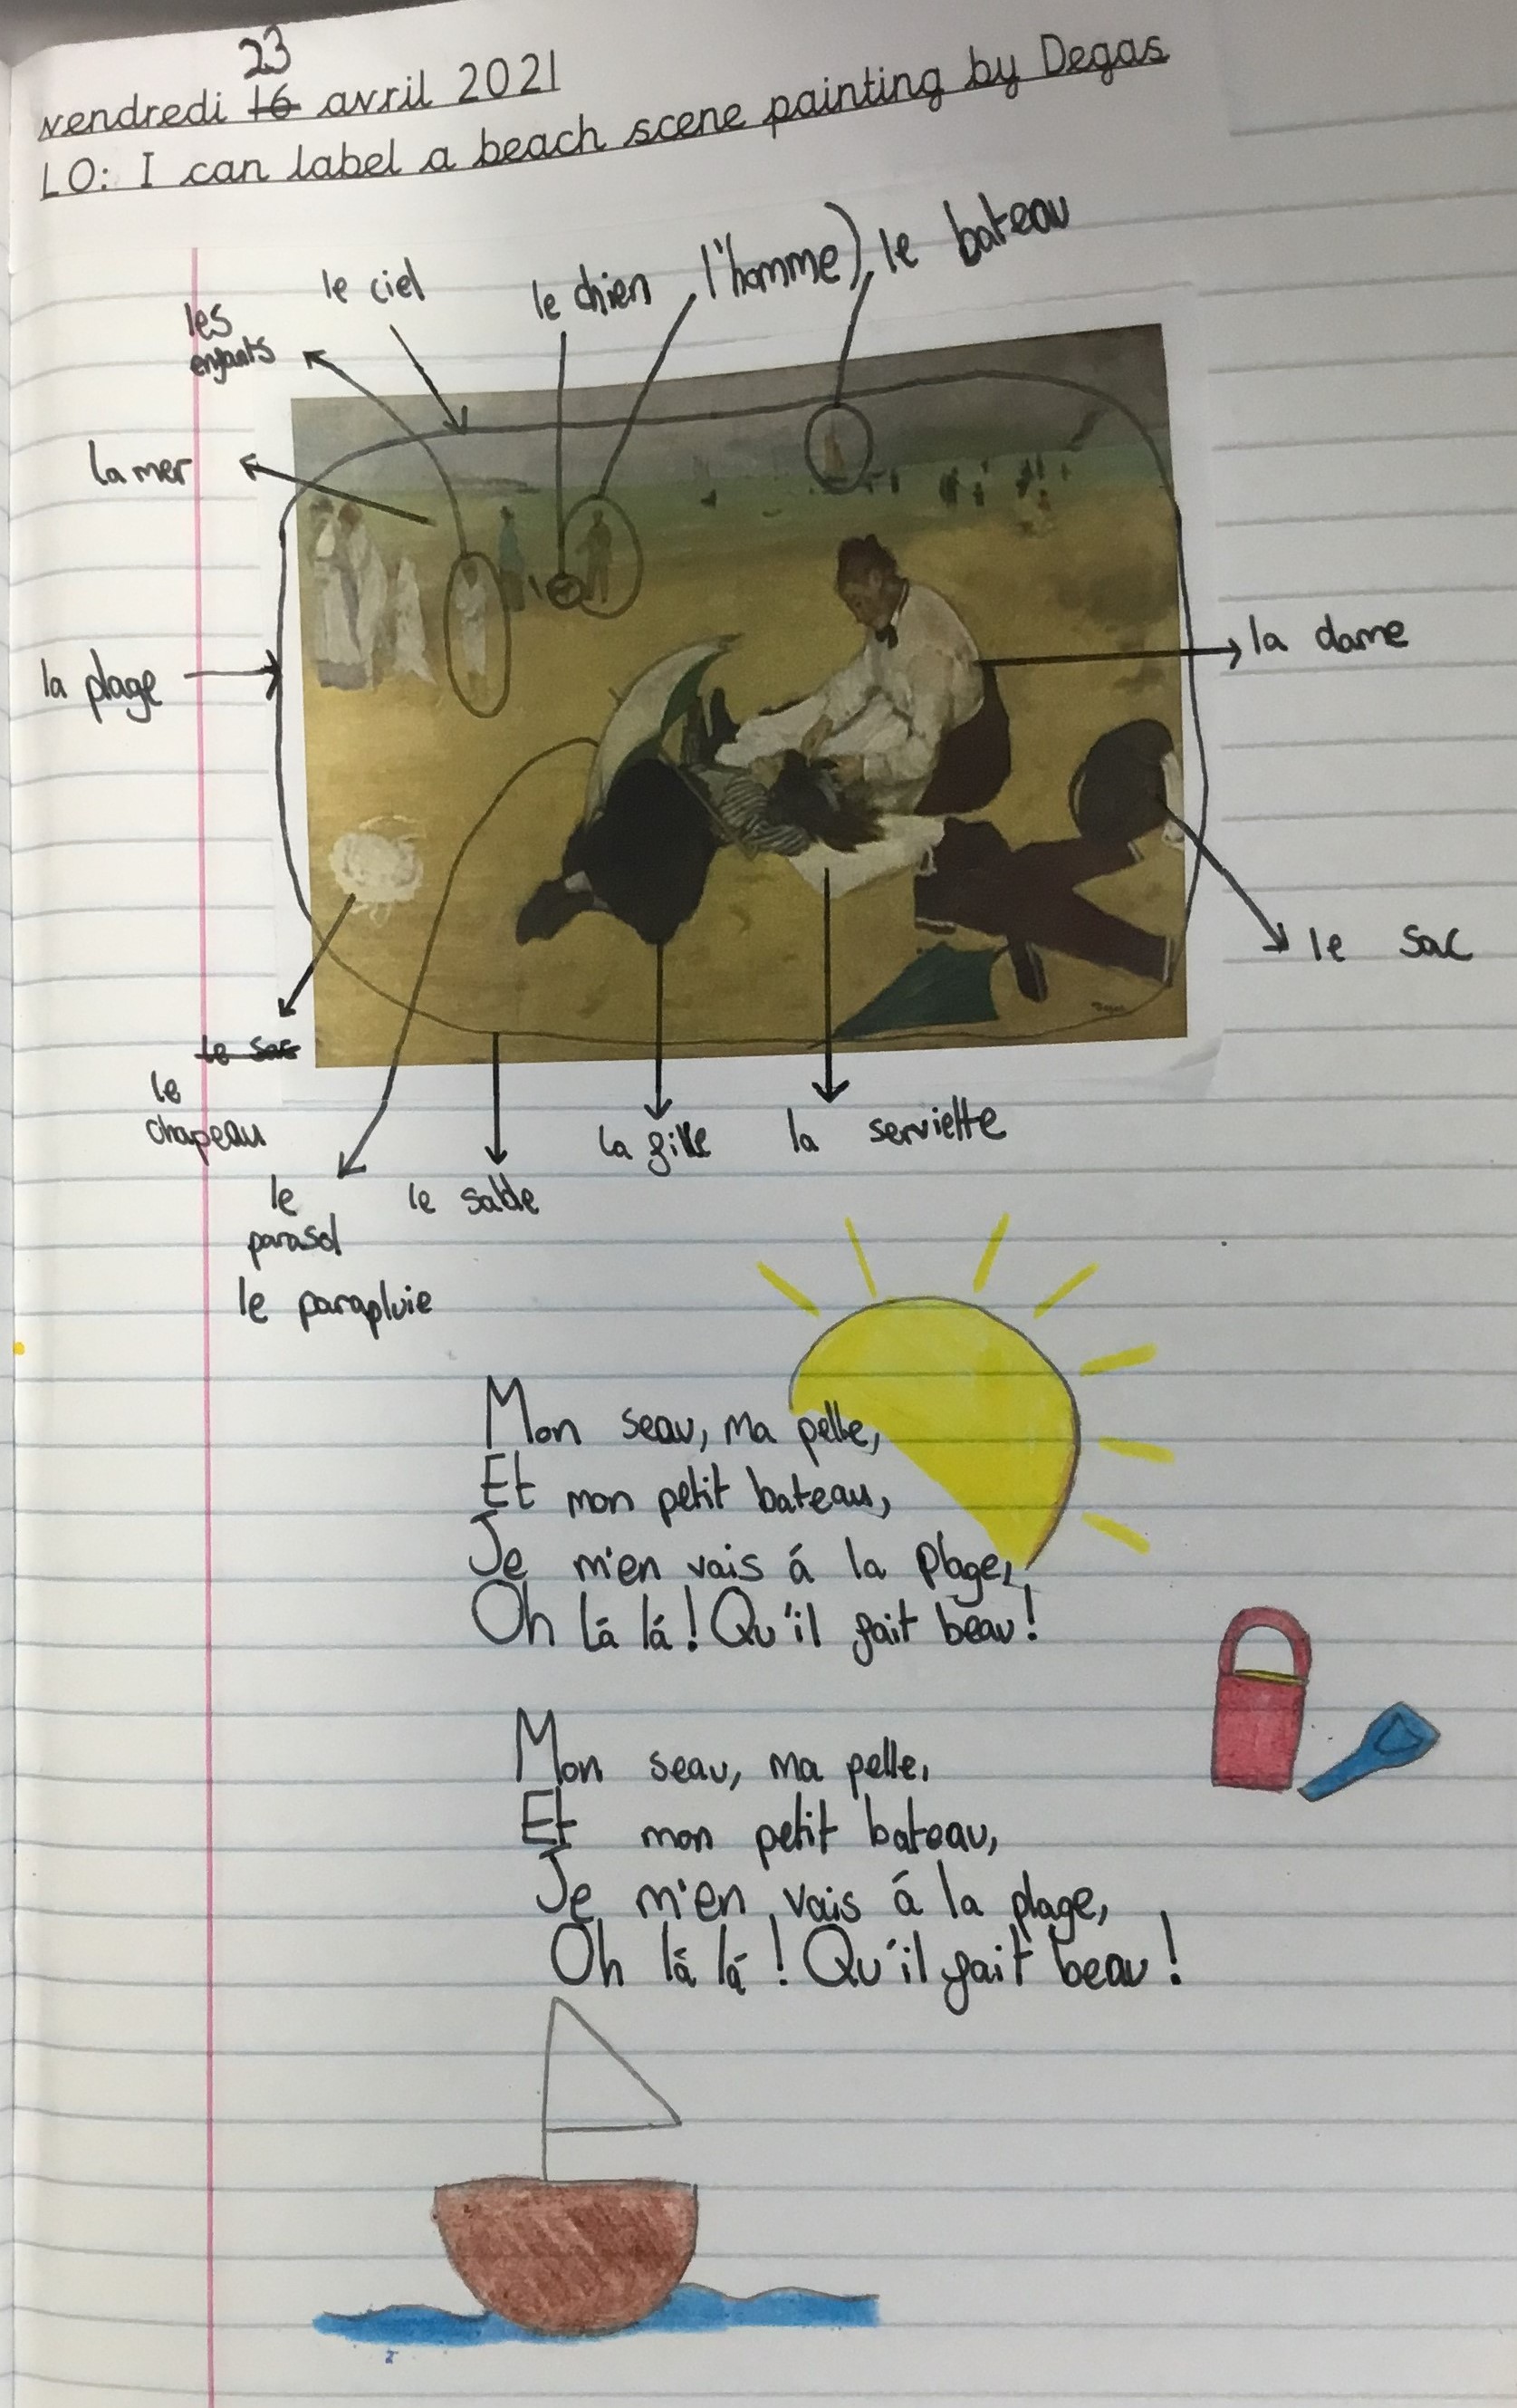 23
vendredi 16 avril 2021
LO: I can label a beach scene painting by Degas
le ciel
le chien
l'homme)
le bateau
les
enfants
la mer
la plage
la dame
le sac
le sac
le
chapeau
la fille
la serviette
le
parasol
le sable
le parapluie
Mon seau, ma pelle,
Et mon petit bateau,
Je m'en vais á la plage,
Oh Lá lá! Qu'il fait beau!
Mon seau, ma pelle,
Et mon petit bateau,
Je m'en vais á la plage,
Oh lá lá! Qu'il fait beau!